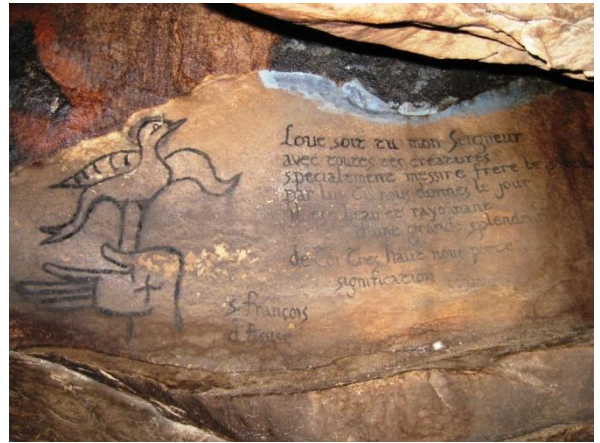 Loué soit tu mon Seigneur
avec toutes tes créatures
specialement messire frere le
par lui tu nous donnes le jour
il est beau et rayonnant
d'une grande splendeur
de toi Tres haut nous porte
signification
S. François
d'Assise